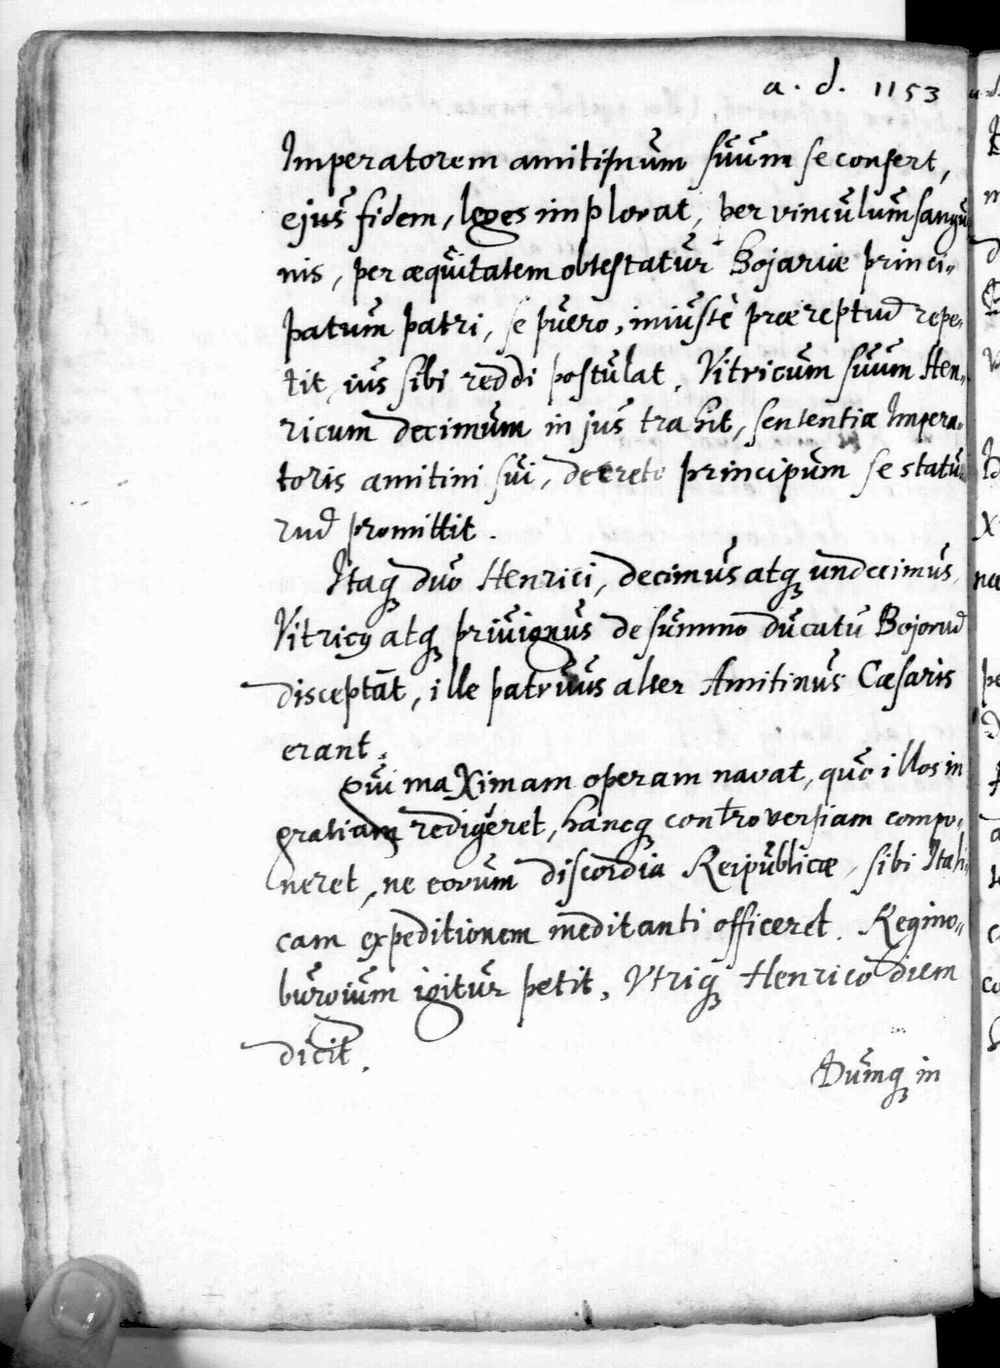 a. d. 1153
Imperatorem amitinum suum se confert,
ejus fidem, leges implorat, per vinculum sangui
nis, per æquitatem obtestatur Bojariæ princi„
patum patri, se puero, iniustè præreptũ repe„
tit, ius sibi reddi postulat, Vitricum suum Hen„
ricum decimum in jus trahit, sententiæ Impera„
toris amitini sui, decreto principum se statu„
rũ promittit.
Itaq; duo Henrici, decimus atq; undecimus,
Vitricꝰ atq; priuignus de summo ducatu Bojorũ
disceptãt, ille patruus alter Amitinus Cæsaris
erant.
Qui maximam operam navat, quo illos in
gratiam redigeret, hancq; controversiam compo„
neret, ne eorum discordia Reipublicæ, sibi Itali„
cam expeditionem meditanti officeret. Regino„
burgium igitur petit, Vtriq; Henrico diem
dicit.
Dumq; in